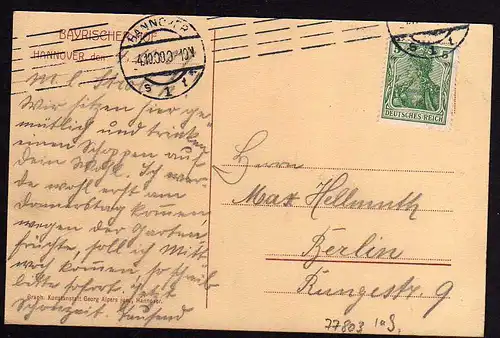 BAYRISCHER HOF
HANNOVER, den
HANNOVER
S 1 t
DEUTSCHES REICH
Wir sitzen hier ge-
mütlich und trinken
einen Schoppen auf
dein Wohl. Ich wer-
de wohl erst am
Donnerstag kommen
wegen der Garten
früchte, soll ich Mitt
woch kommen, so theile
bitte sofort. Jetzt
Schonzeit. Tausend
Herrn
Max Hellmuth
Berlin
Rungestr. 9
Graph. Kunstanstalt Georg Alpers jun., Hannover.
77803